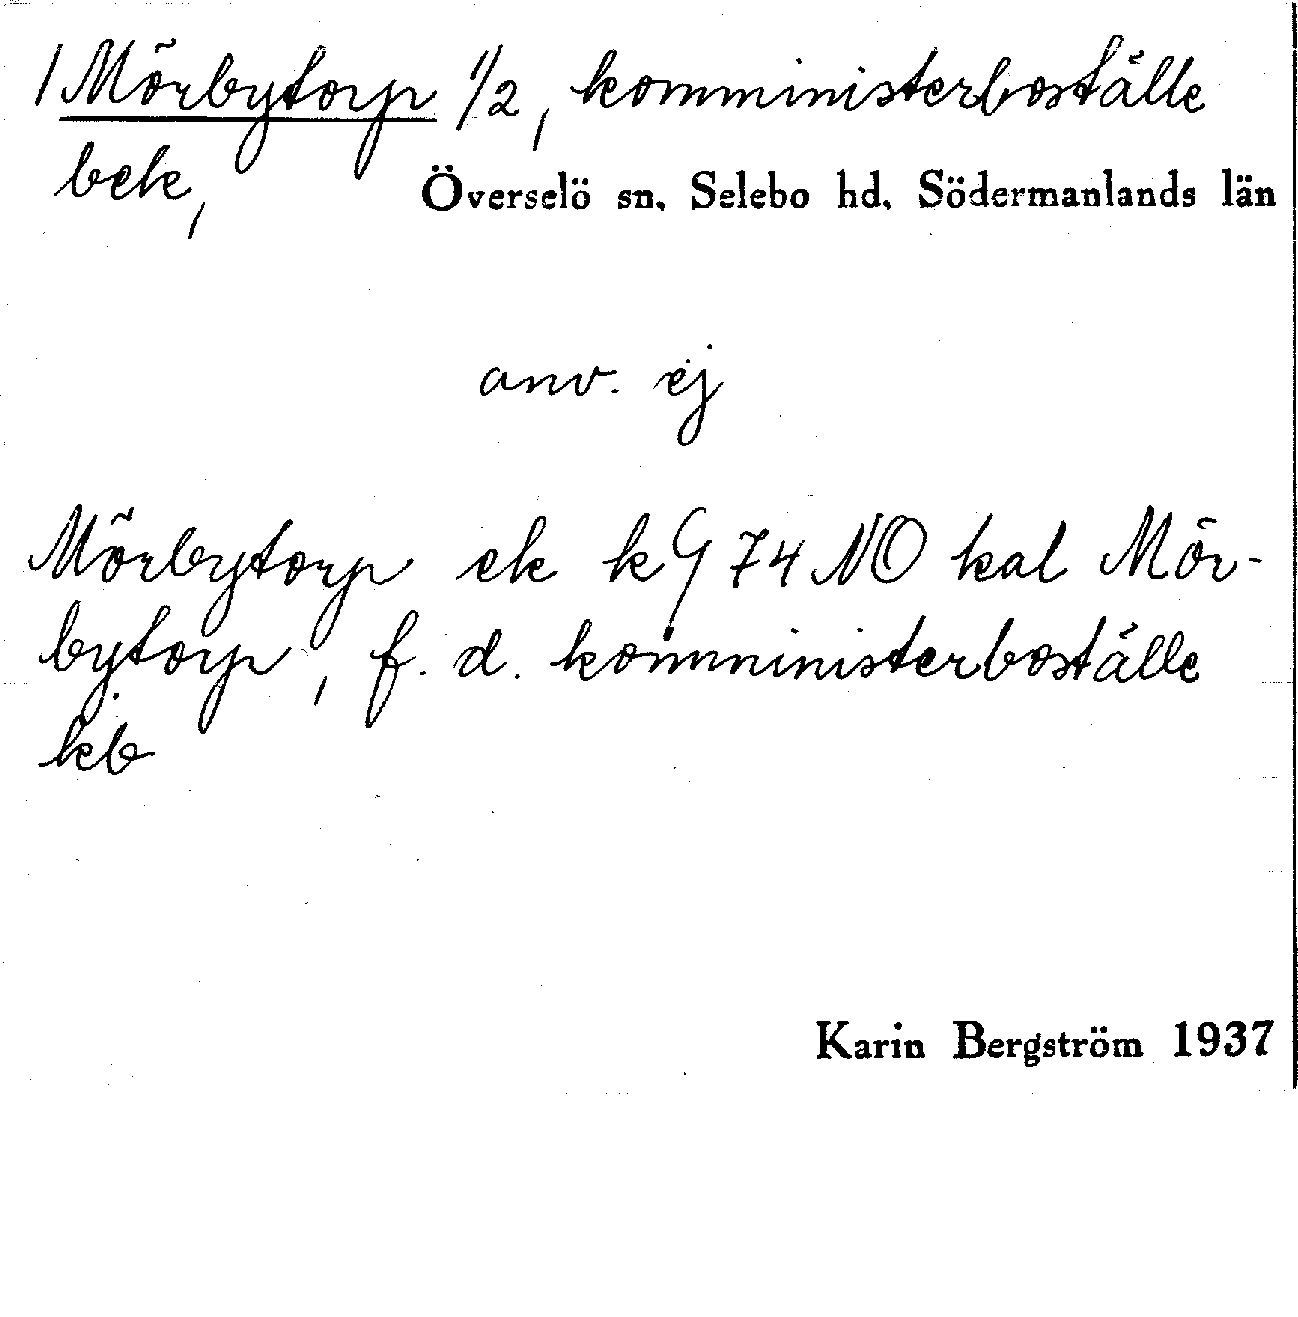 / Mörbytorp 1/2, komministerboställe
bek,
Överselö sn, Selebo hd, Södermanlands län
anv. ej
Mörbytorp ek kG 74 NO kal Mör-
bytorp, f. d. komministerboställe
kb
Karin Bergström 1937